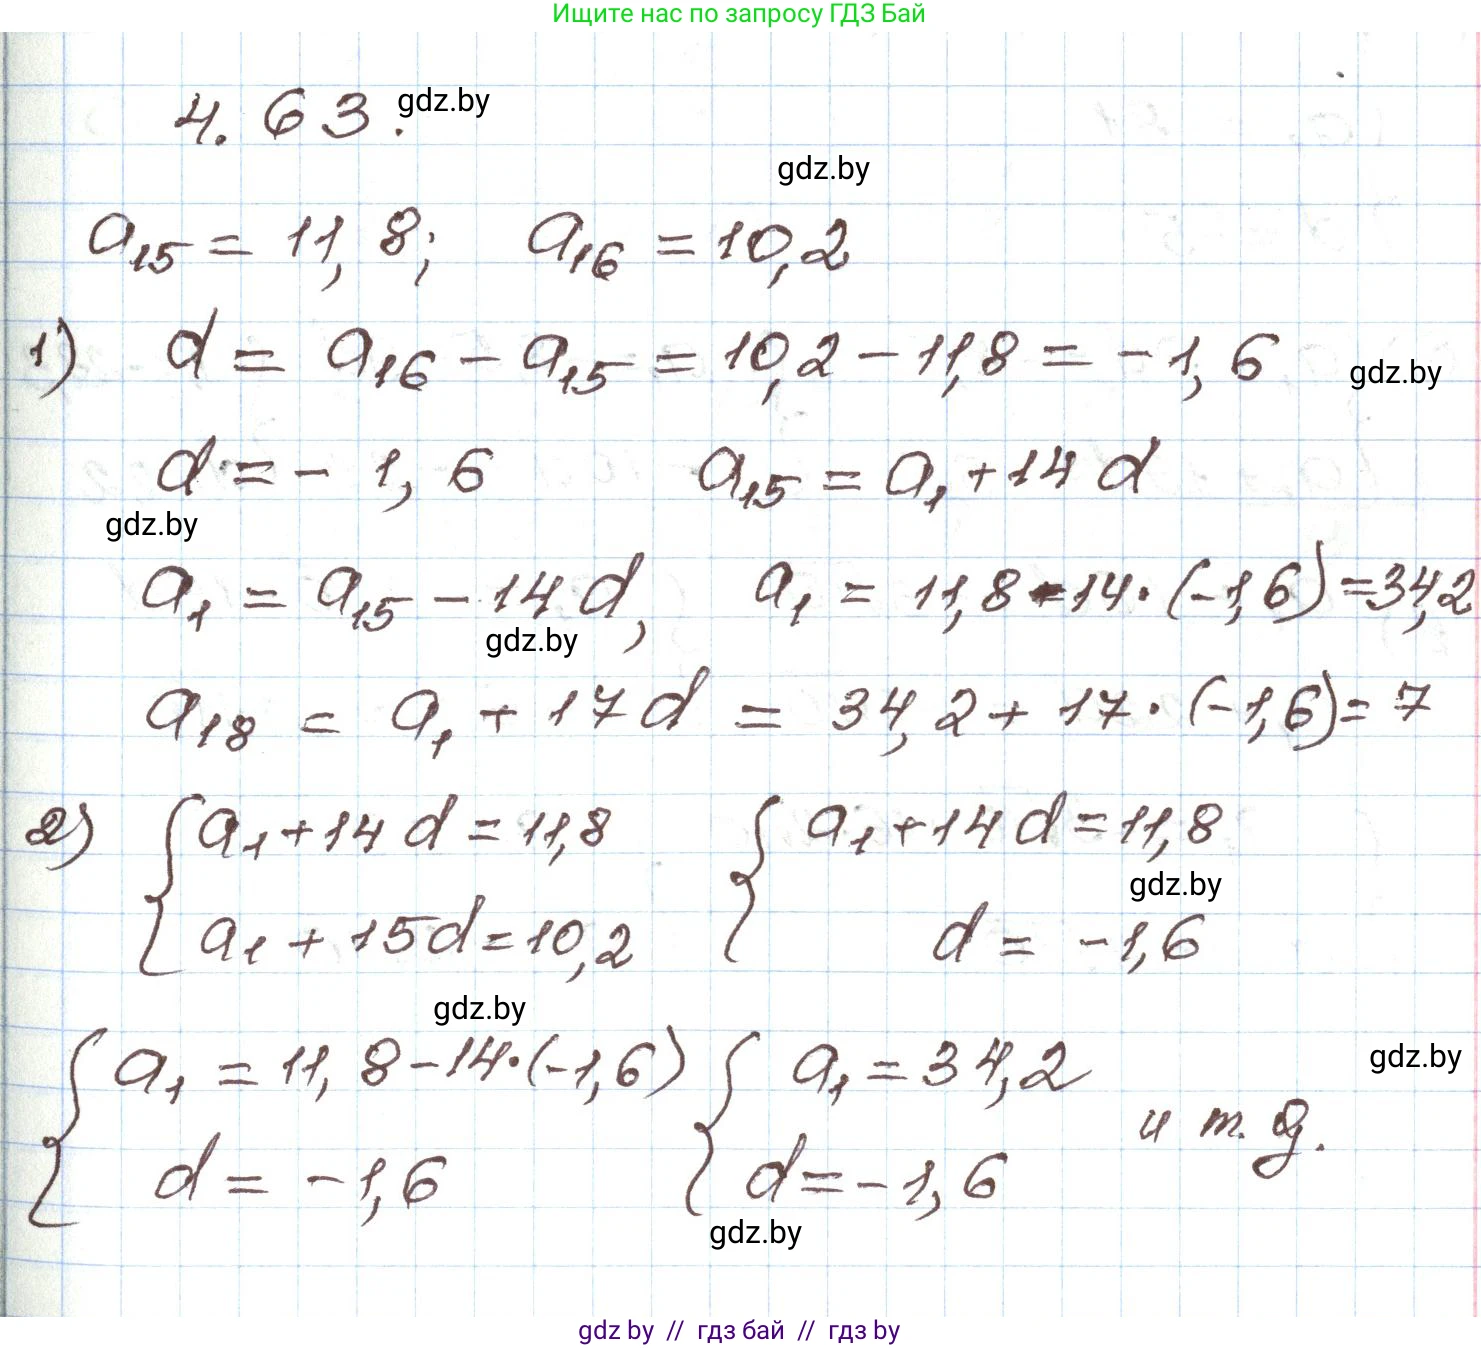 Ищите нас по запросу ГДЗ Бай
4.63. gdz.by
gdz.by
a₁₅ = 11,8; a₁₆ = 10,2
1) d = a₁₆ - a₁₅ = 10,2 - 11,8 = -1,6 gdz.by
d = - 1,6 a₁₅ = a₁ + 14d
gdz.by
a₁ = a₁₅ - 14d, a₁ = 11,8 - 14·(-1,6) = 34,2
gdz.by
a₁₈ = a₁ + 17d = 34,2 + 17·(-1,6) = 7
2) { a₁ + 14d = 11,8 { a₁ + 14d = 11,8
gdz.by
a₁ + 15d = 10,2 d = -1,6
gdz.by
{ a₁ = 11,8 - 14·(-1,6) { a₁ = 34,2 gdz.by
и т. д.
d = -1,6 d = -1,6
gdz.by
gdz by // гдз бай // гдз by